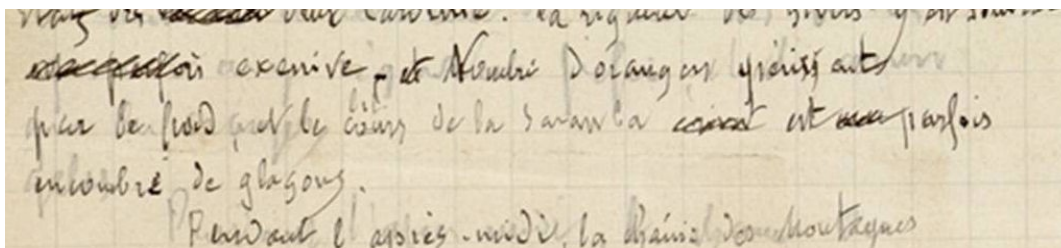 des deux Caroline. La rigueur des hivers y est souvent
excessive. Nombre d'orangers périssent
par le froid et le cours de la Savanha est parfois
encombré de glaçons.
Pendant l'après-midi, la chaîne des Montagnes